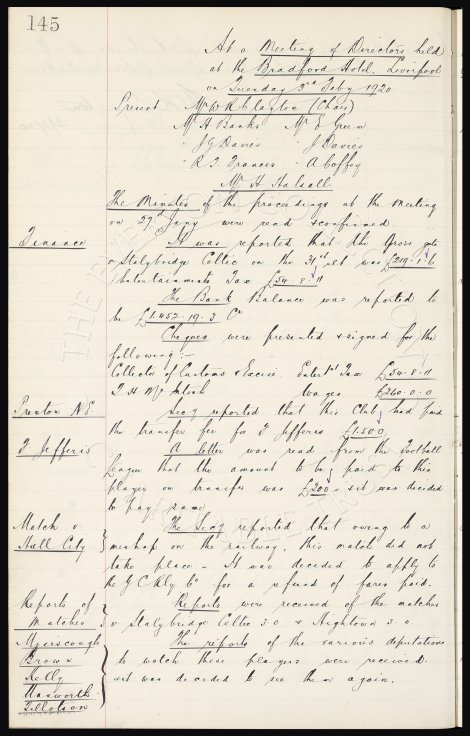 145
At a Meeting of Directors held
at the Bradford Hotel, Liverpool
on Tuesday 3rd Feby 1920
Present Mr W R Clayton (Chair)
Mr H Banks Mr E Green
" J G Davies " J Davies
" R T Francis " A Coffey
Mr H Halsall
The Minutes of the proceedings at the meeting
on 27th Jany were read & confirmed
Finance It was reported that the Gross gate
v Stalybridge Celtic on the 31st ult was £219.1.6
Entertainments Tax £54.8.11
The Bank Balance was reported to
be £1452.19.3 Cr
Cheques were presented & signed for the
following :-
Collector of Customs & Excise Entert't Tax £54.8.11
T H McIntosh Wages £260.0.0
Preston N.E. Secy reported that this Club had paid
the transfer fee for T Jefferis £1500
T Jefferis A letter was read from the Football
League that the amount to be paid to this
player on transfer was £200 - & it was decided
to pay same
Match v The Secy reported that owing to a
Hull City mishap on the railway, this match did not
take place - It was decided to apply to
the G C Rly Co for a refund of fares paid.
Reports of Reports were received of the matches
Matches v Stalybridge Celtic 3.0 & Hightown 3.0
Myerscough The reports of the various deputations
Brown to watch these players were received
Kelly & it was decided to see them again.
Unsworth
Tillotson